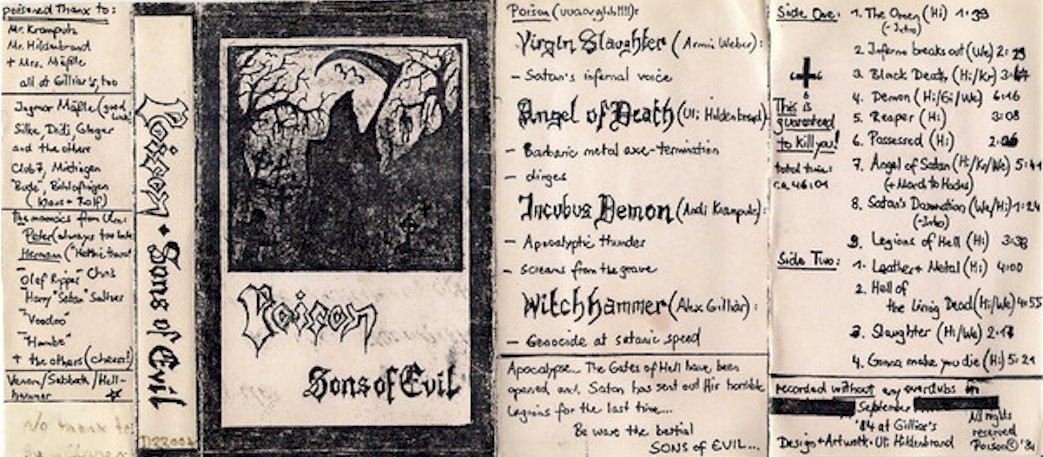 poisoned Thanx to:
Mr. Kramputz
Mr. Hildenbrand
+ Mrs. Mäßle
all at Gilliar's, too
Ingmar Mäßle (good
Silke, Didi Gloger
and the others
Club 7, Möttingen
"Bude", Bühlafingen
(Klaus + Rolf)
The maniacs from Ulm:
Peter (always too late
Hermann
"Olaf Ripper" Chris
Harry "Satan" Saltner
"Voodoo"
"Hombe"
+ the others (cheers!)
Venom/Sabbath/Hell-
hammer
No thanx to
Poison + Sons of Evil
D22002
Poison
Sons of Evil
Poison (uuaarghh!!!!):
Virgin Slaughter (Armin Weber):
- Satan's infernal voice
Angel of Death (Uli Hildenbrand):
- Barbaric metal axe-termination
- dirges
Incubus Demon (Andi Kramputz):
- Apocalyptic thunder
- screams from the grave
Witchhammer (Alex Gilliar):
- Genocide at satanic speed
Apocalypse... The Gates of Hell have been
opened and Satan has sent out His horrible
Legions for the last time...
Be ware the bestial
SONS of EVIL...
Side One:
1. The Omen (Hi) 1:39
(-Intro)
2. Inferno breaks out (We) 2:23
3. Black Death (Hi/Kr)
4. Demon (Hi/Gi/We) 6:16
5. Reaper (Hi) 3:08
6. Possessed (Hi)
7. Angel of Satan (Hi/Kr/We) 5:41
(+ Mard to Hades)
8. Satan's Damnation (We/Hi) 1:24
(-Intro)
9. Legions of Hell (Hi) 3:38
6 6
6
This is
guaranteed
to kill you!
total time:
c.a. 46:01
Side Two:
1. Leather + Metal (Hi) 4:00
2. Hell of
the Living Dead (Hi/We) 4:55
3. Slaughter (Hi/We)
4. Gonna make you die (Hi) 5:21
recorded without any overdubs in
September
'84 at Gilliar's
Design + Artwork: Uli Hildenbrand
All rights
reserved
Poison © '84